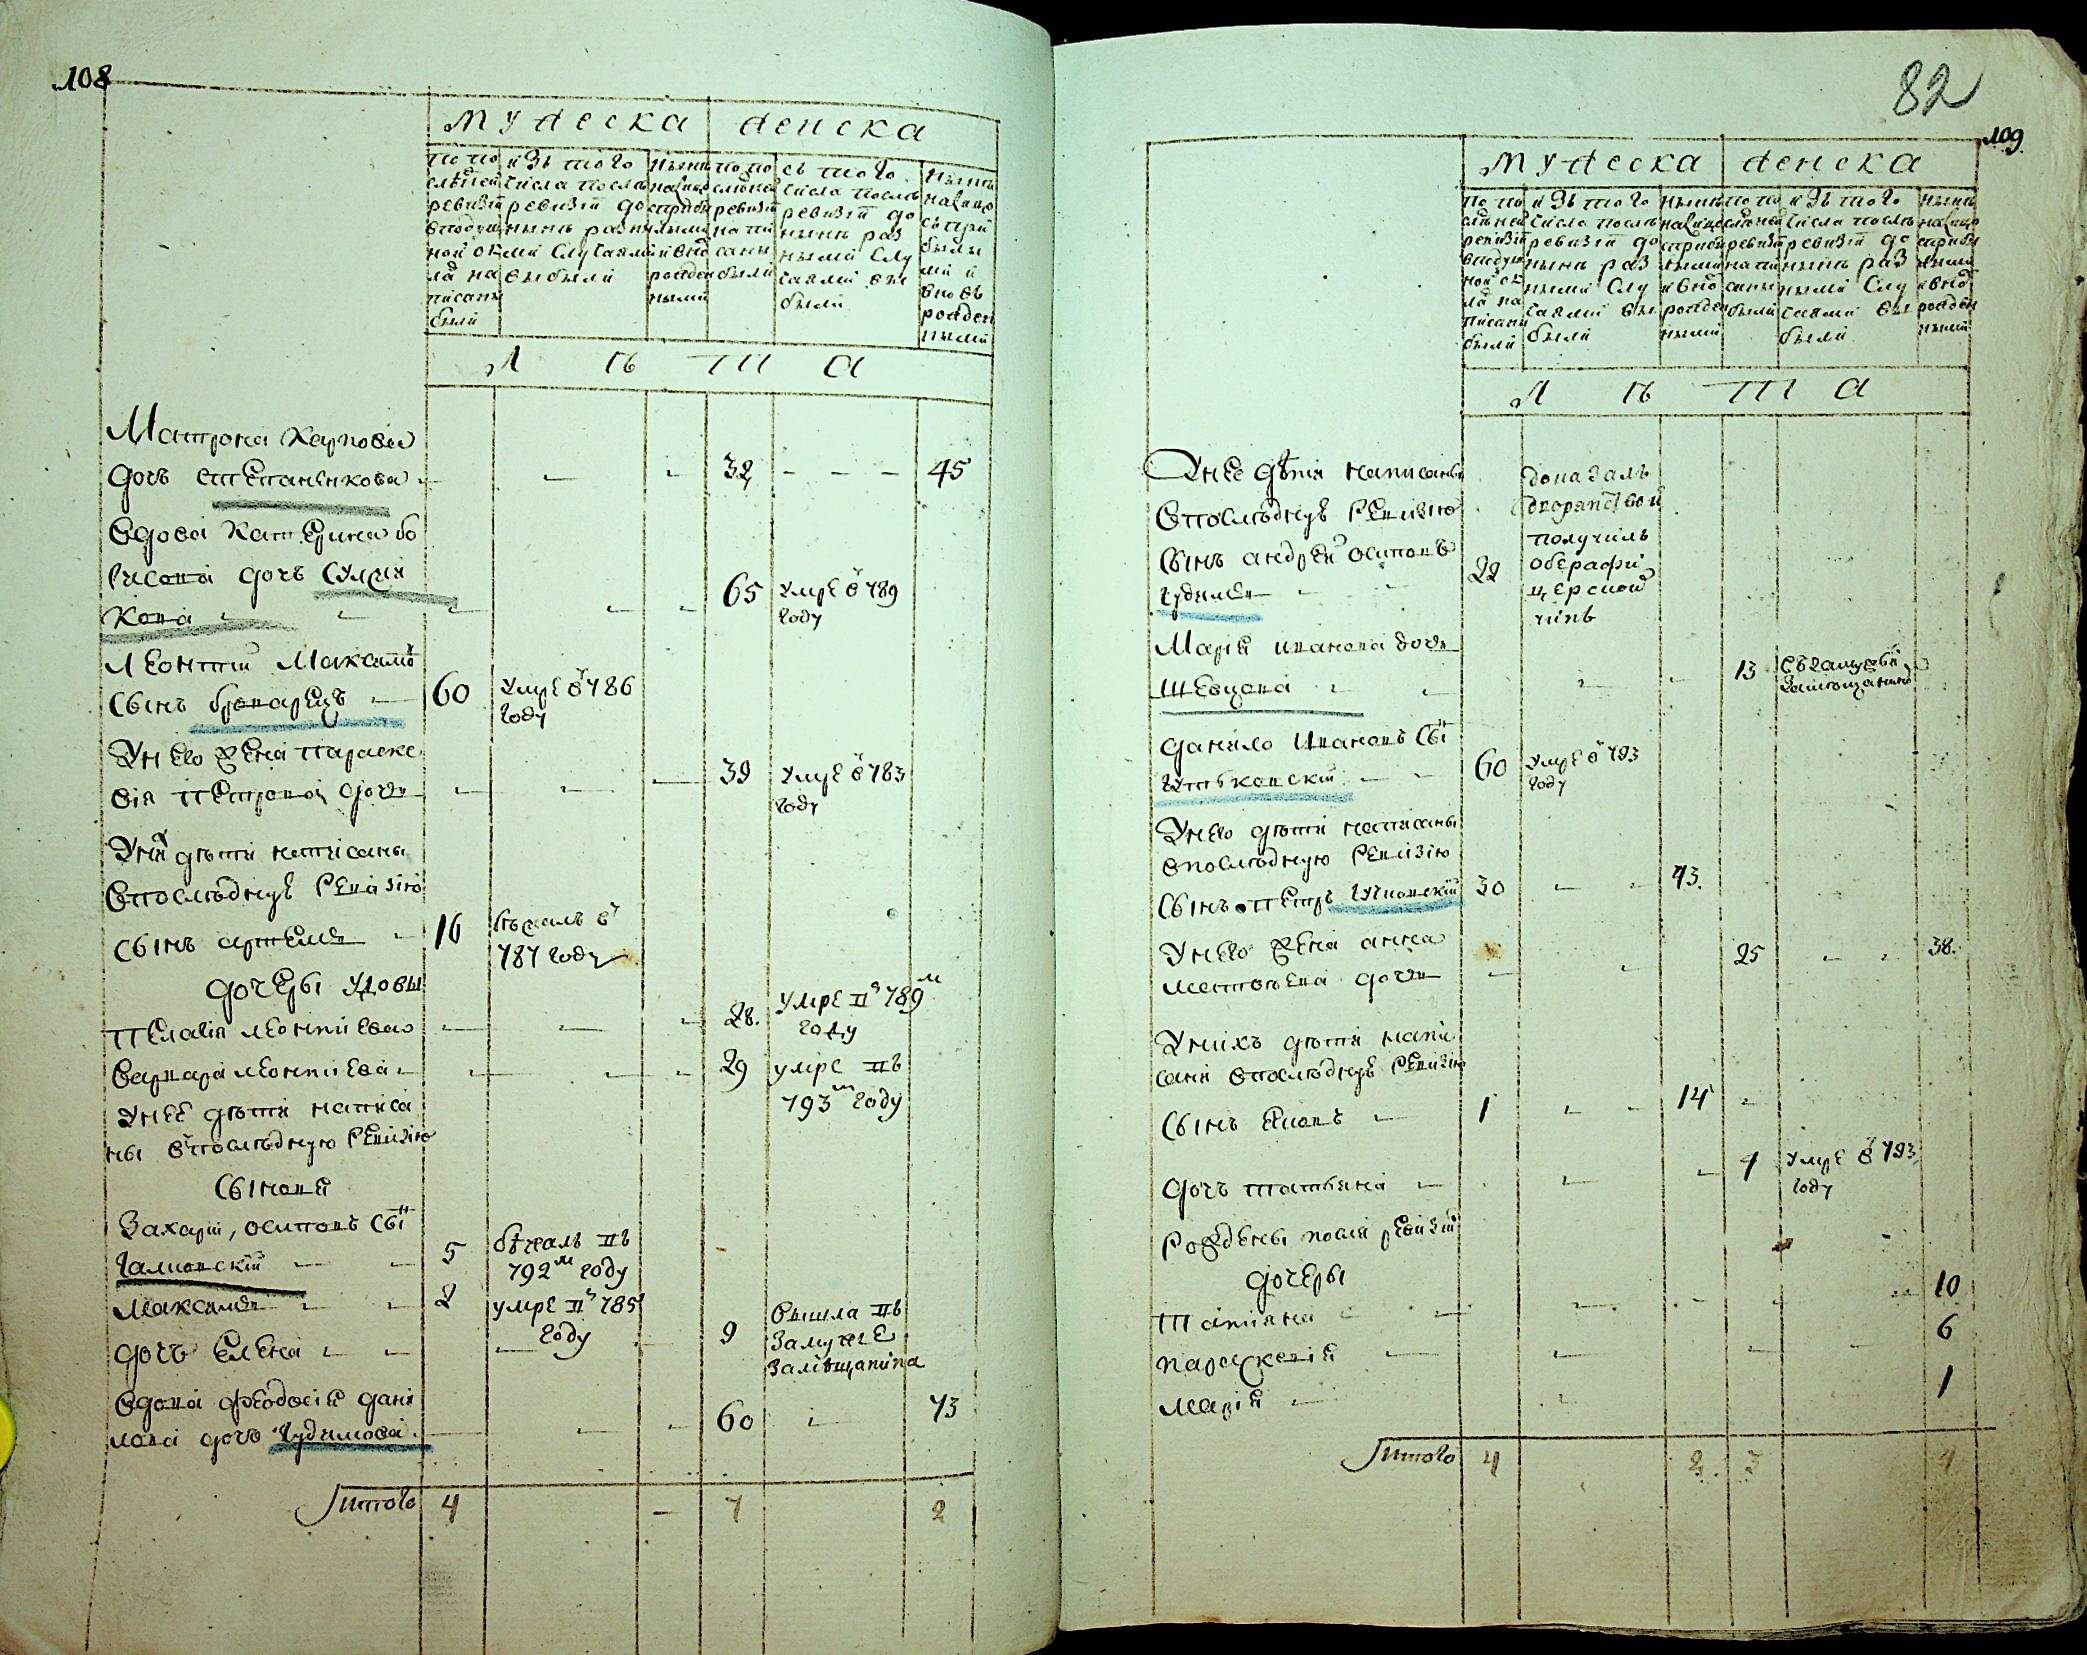 108
мужеска женска
По по
слѣдней
ревизіи
въ подуш
ной ок
ладъ на
писаны
были
изъ того
числа послѣ
ревизіи до
нынѣ разны
ми случаями
выбыли
нынѣ
на лицо
съ прибы
лыми
и внов
рожден
ными
по по
слѣдней
ревизіи
напи
саны
были
съ того
числа послѣ
ревизіи до
нынѣ раз
ными слу
чаями вы
были
нынѣ
на лицо
съ при
былы
ми и
вновь
рожден
ными
Л ѣ т а
Матрона Карпова
дочь Степаненкова - - 32 - - - 45
вдова Катерина бо
рисова дочь
кова - - - 65 умре в 789
году
Леонтій Максимов
сынъ бреварецъ - 60 умре в 786
году
У него жена Параске
вія Петрова дочь - - - 39 умре в 783
году
У них дѣти написаны
в последнуѣ ревизію
сынъ Артемъ - 16 бѣжалъ в
787 году
дочеры удовы
Пелагія Леонтіева - - - 28. умре въ 789м
году
Варвара Леонтіева - - - - 29 умре въ
793м году
У нее дѣти написа
ны в последную ревизію
сыновя
Захарій, Осиповъ сын
Галиовскій - - 5 бѣжалъ въ
792м году
Максимъ - - 2 умре въ 785
году
дочь Елена - - - - 9 вышла въ
замуже
за мѣщанина
вдова Феодосія Дани
лова дочь Чудимова - - - 60 - 73
Итого 4 - 7 2
82
109
мужеска женска
по по
слѣдней
ревизіи
въ подуш
ной ок
ладъ на
писаны
были
изъ того
числа послѣ
ревизіи до
нынѣ раз
ными слу
чаями вы
были
нынѣ
на лицо
с прибы
лыми
и внов
рожден
ными
по по
слѣдней
ревизіи
напи
саны
были
изъ того
числа послѣ
ревизіи до
нынѣ раз
ными слу
чаями вы
были
нынѣ
на лицо
с прибы
лыми
и внов
рожден
ными
Л ѣ т а
У нее дѣтя написаны
в последнуѣ ревизію
сынъ Андрей Осиповъ
Чудимъ - - 22
доказалъ
дворянство и
получилъ
оберофи
церской
чинъ
Марія Иванова дочь
Шевцова - - - - 13 в замужествѣ
за мещанином
Данило Ивановъ сын
Гутковскій - - 60 умре в 793
году
У него дѣти написаны
в последную ревизію
сынъ Петръ 30 - - 43.
У него жена Анна
Матвѣева дочь - - 25 - - 38.
У нихъ дѣти напи
сани в последнуѣ ревизію
сынъ Яковъ - 1 - - 14 -
дочь Татьяна - - - 4 умре в 793
году
Рождены после ревизіи
дочеры
Татіяна - - - - - - 10
Параскевія - - - - 6
Марія - - 1
Итого 4 2. 3 4